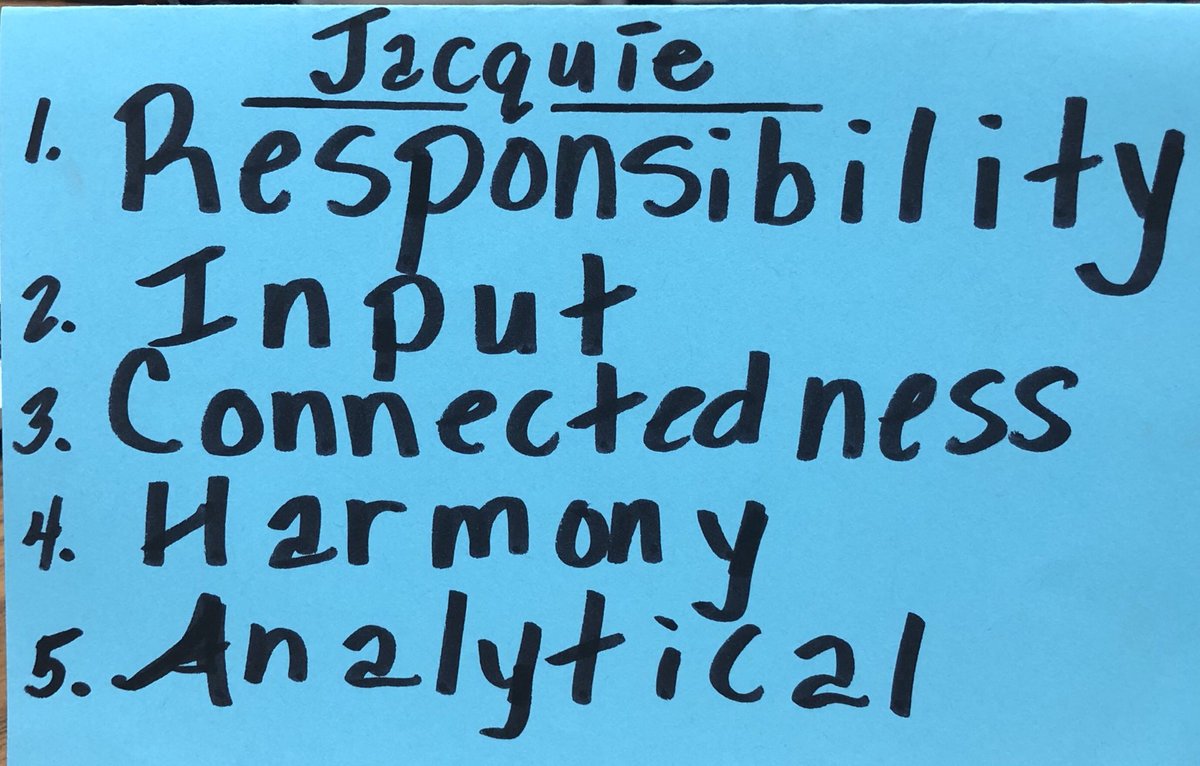 Jacquie
1. Responsibility
2. Input
3. Connectedness
4. Harmony
5. Analytical